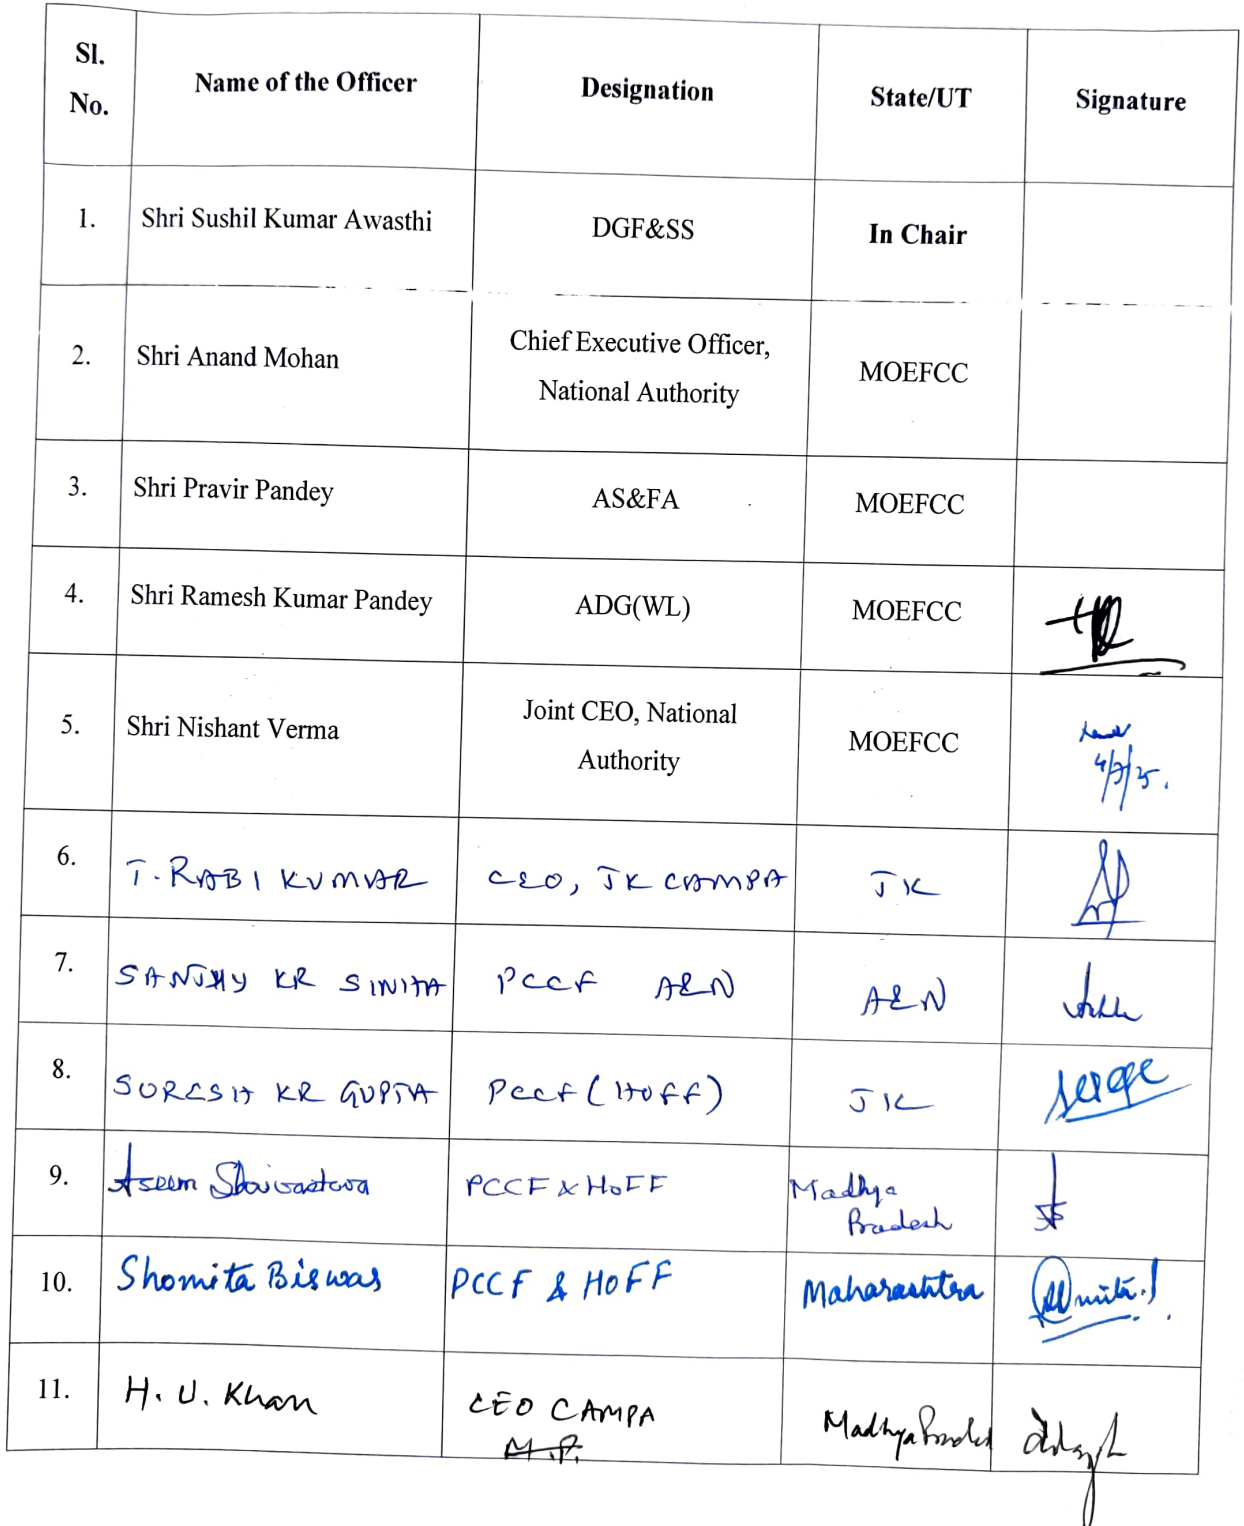 Sl. No. Name of the Officer Designation State/UT Signature
1. Shri Sushil Kumar Awasthi DGF&SS In Chair
2. Shri Anand Mohan Chief Executive Officer, National Authority MOEFCC
3. Shri Pravir Pandey AS&FA MOEFCC
4. Shri Ramesh Kumar Pandey ADG(WL) MOEFCC
5. Shri Nishant Verma Joint CEO, National Authority MOEFCC 4/7/25.
6. T. RABI KUMAR CEO, JK CAMPA JK
7. SANJAY KR SINHA PCCF A&N A&N
8. SURESH KR GUPTA PCCF (HOFF) JK
9. Aseem Shrivastava PCCF & HOFF Madhya Pradesh
10. Shomita Biswas PCCF & HOFF Maharashtra
11. H. U. Khan CEO CAMPA M.P. Madhya Pradesh